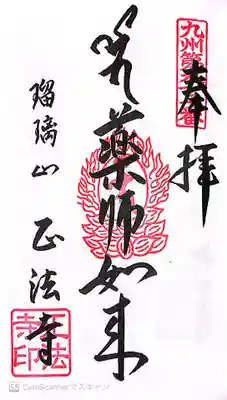 奉拝
薬師如来
瑠璃山 正法寺
CamScannerでスキャン